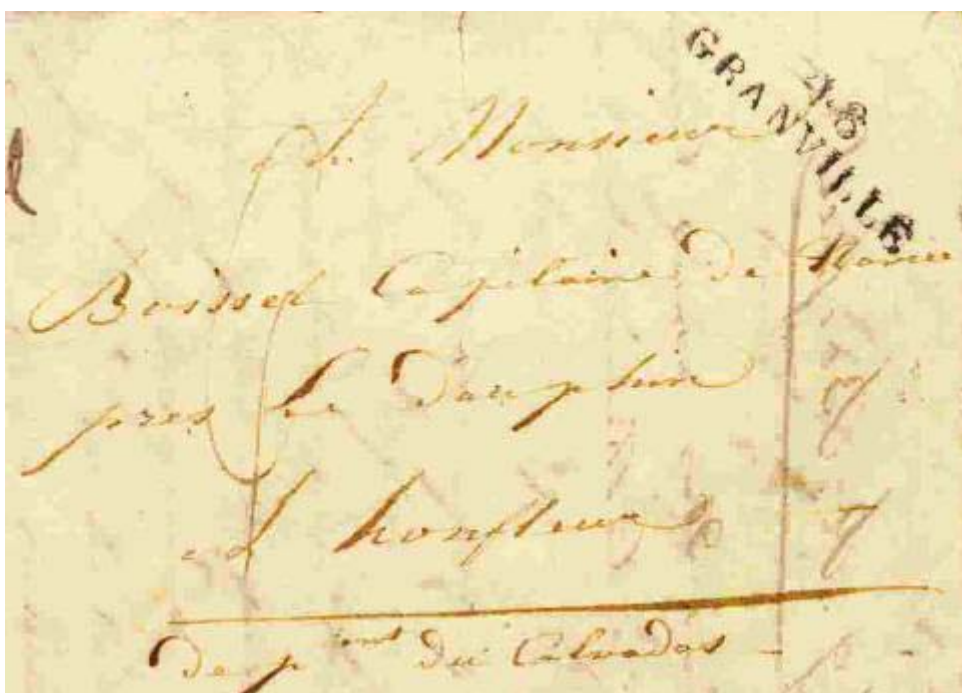 48
GRANVILLE
A Monsieur
Boisset Capitaine de Navire
pres le dauphin
a honfleur
dep ent du Calvados